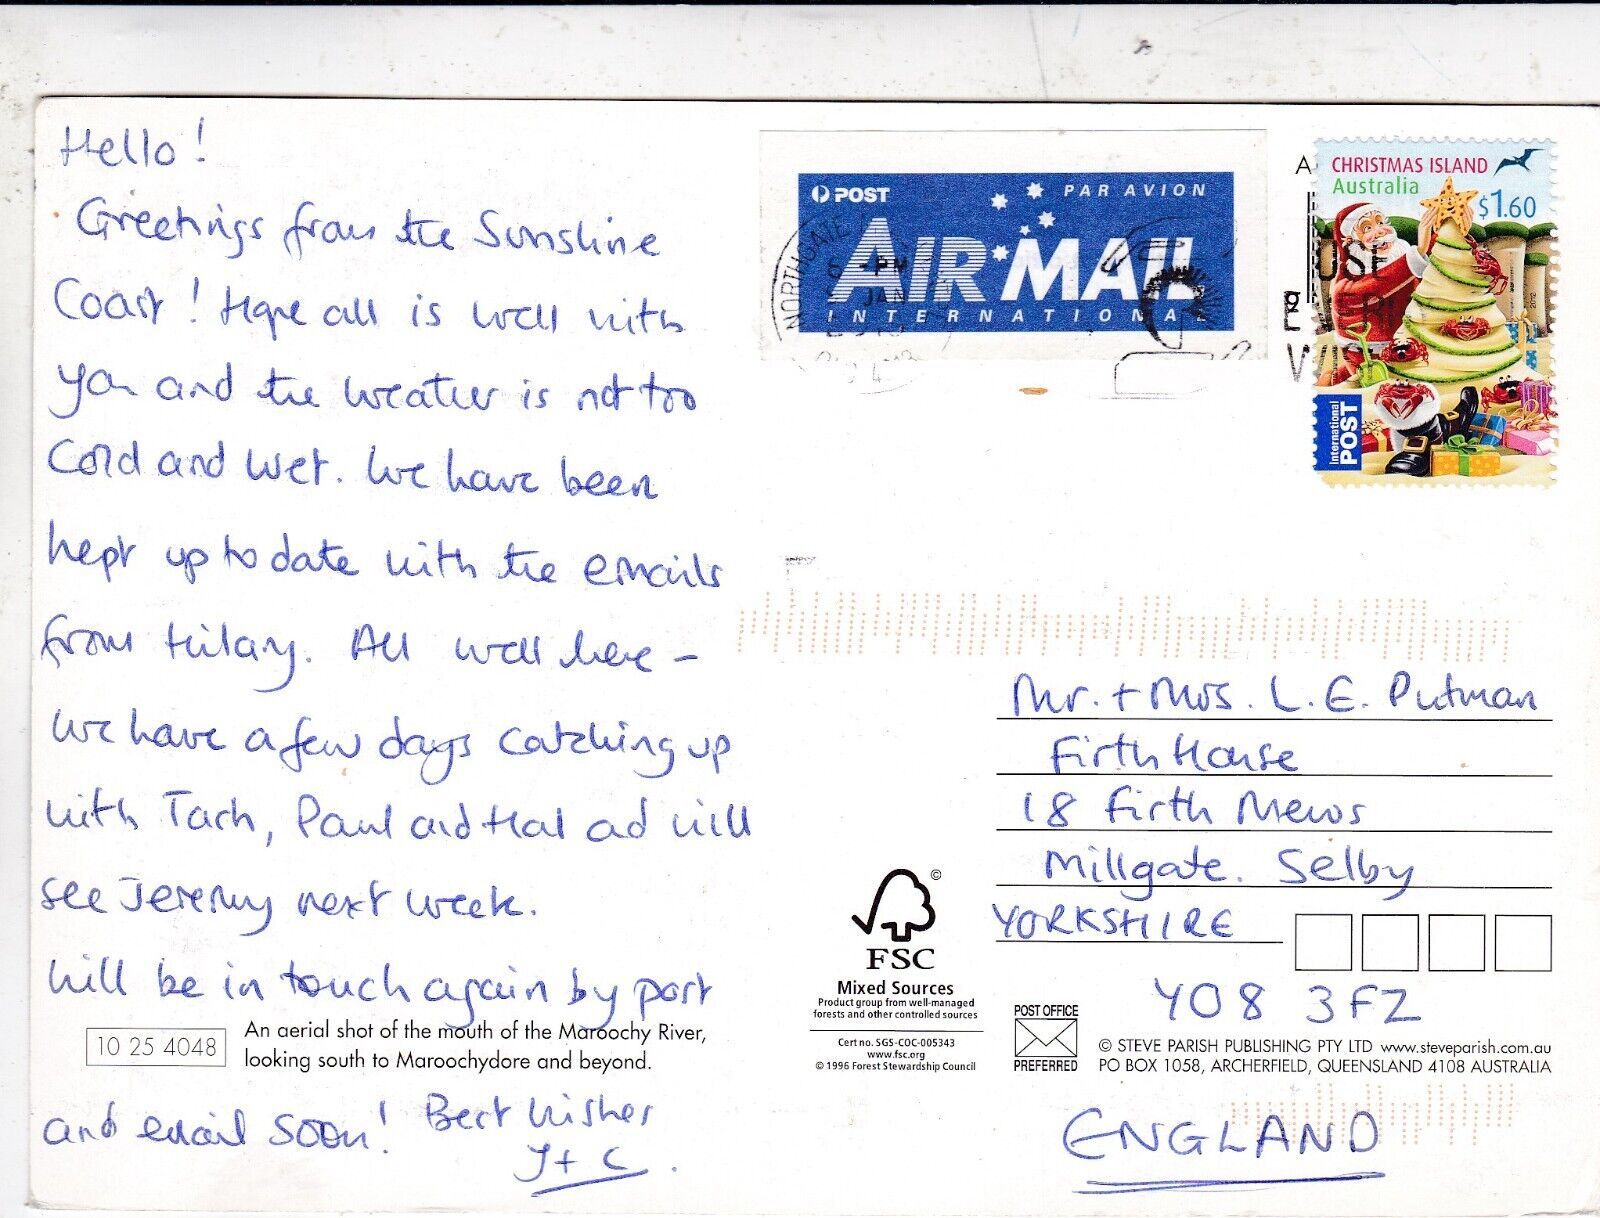 Hello!
Greetings from the Sunshine
Coast! Hope all is well with
you and the weather is not too
cold and wet. We have been
kept up to date with the emails
from Hilary. All well here -
We have a few days catching up
with Tash, Paul and Hal ad will
see Jeremy next week.
Will be in touch again by post
and email soon! Best wishes
J + C.
10 25 4048
An aerial shot of the mouth of the Maroochy River,
looking south to Maroochydore and beyond.
POST
PAR AVION
AIR MAIL
INTERNATIONAL
NORTHGATE
6 -PM
JAN
CHRISTMAS ISLAND
Australia
$1.60
2012
International
POST
Mr. + Mrs. L. E. Putman
Firth House
18 Firth Mews
Millgate. Selby
YORKSHIRE
YO8 3FZ
ENGLAND
©
FSC
Mixed Sources
Product group from well-managed
forests and other controlled sources
Cert no. SGS-COC-005343
www.fsc.org
© 1996 Forest Stewardship Council
POST OFFICE
PREFERRED
© STEVE PARISH PUBLISHING PTY LTD www.steveparish.com.au
PO BOX 1058, ARCHERFIELD, QUEENSLAND 4108 AUSTRALIA